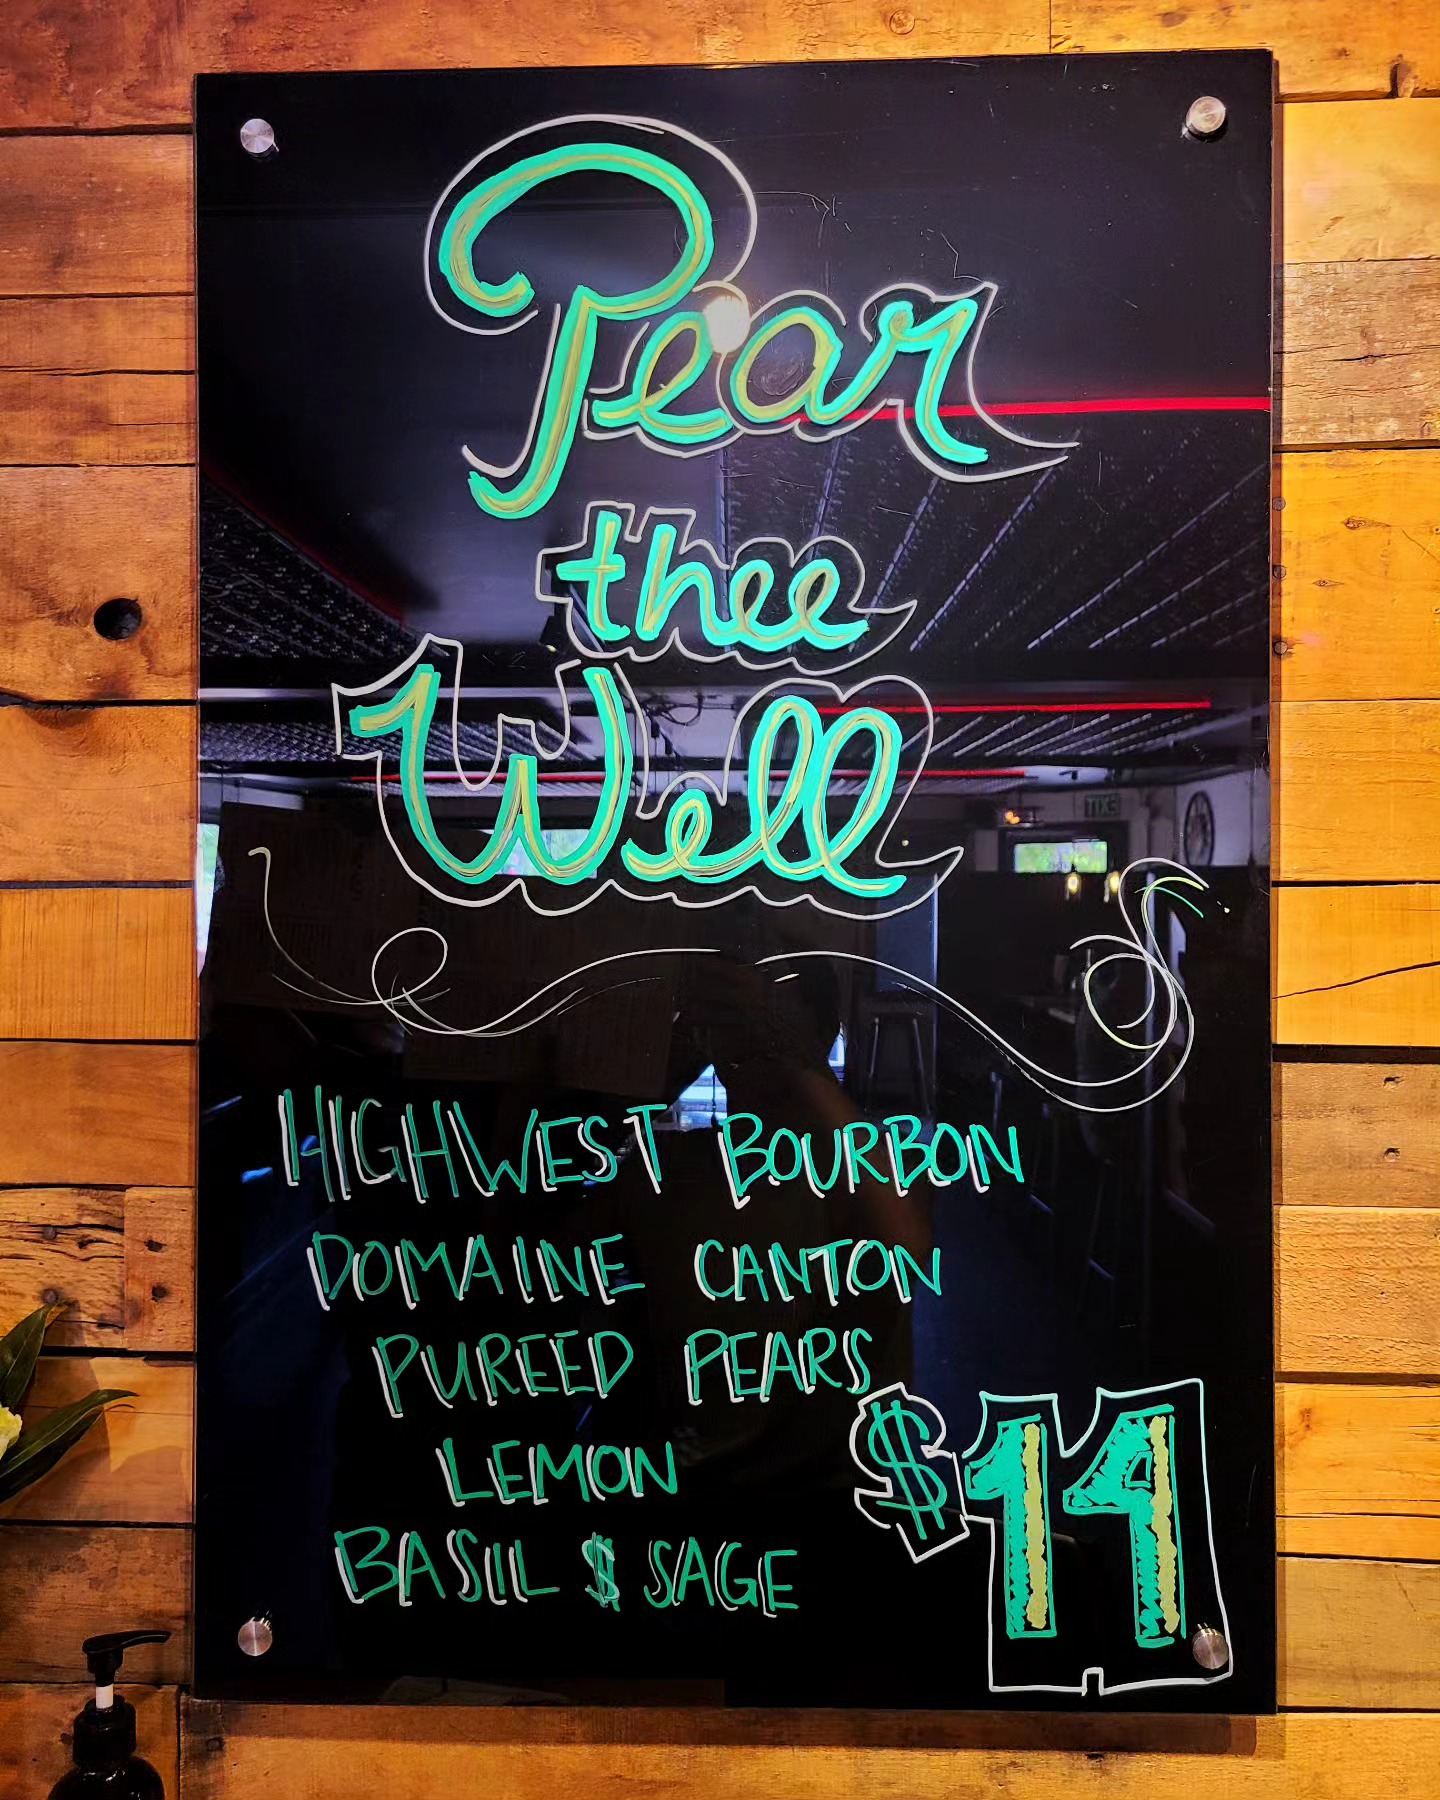 Pear
thee
Well
HIGHWEST BOURBON
DOMAINE CANTON
PUREED PEARS
LEMON
BASIL & SAGE
$14